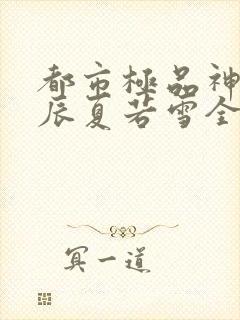 都市極品神
辰夏若雪全
冥一道